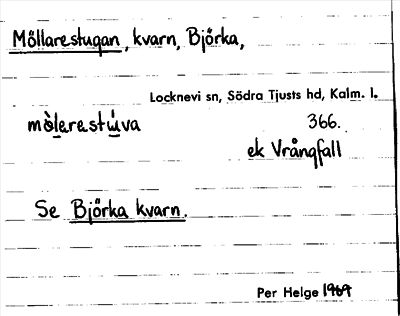 Möllarestugan, kvarn, Björka,
Locknevi sn, Södra Tjusts hd, Kalm. l.
mö̀lerestúva 366.
ek Vrångfall
Se Björka kvarn.
Per Helge 1969